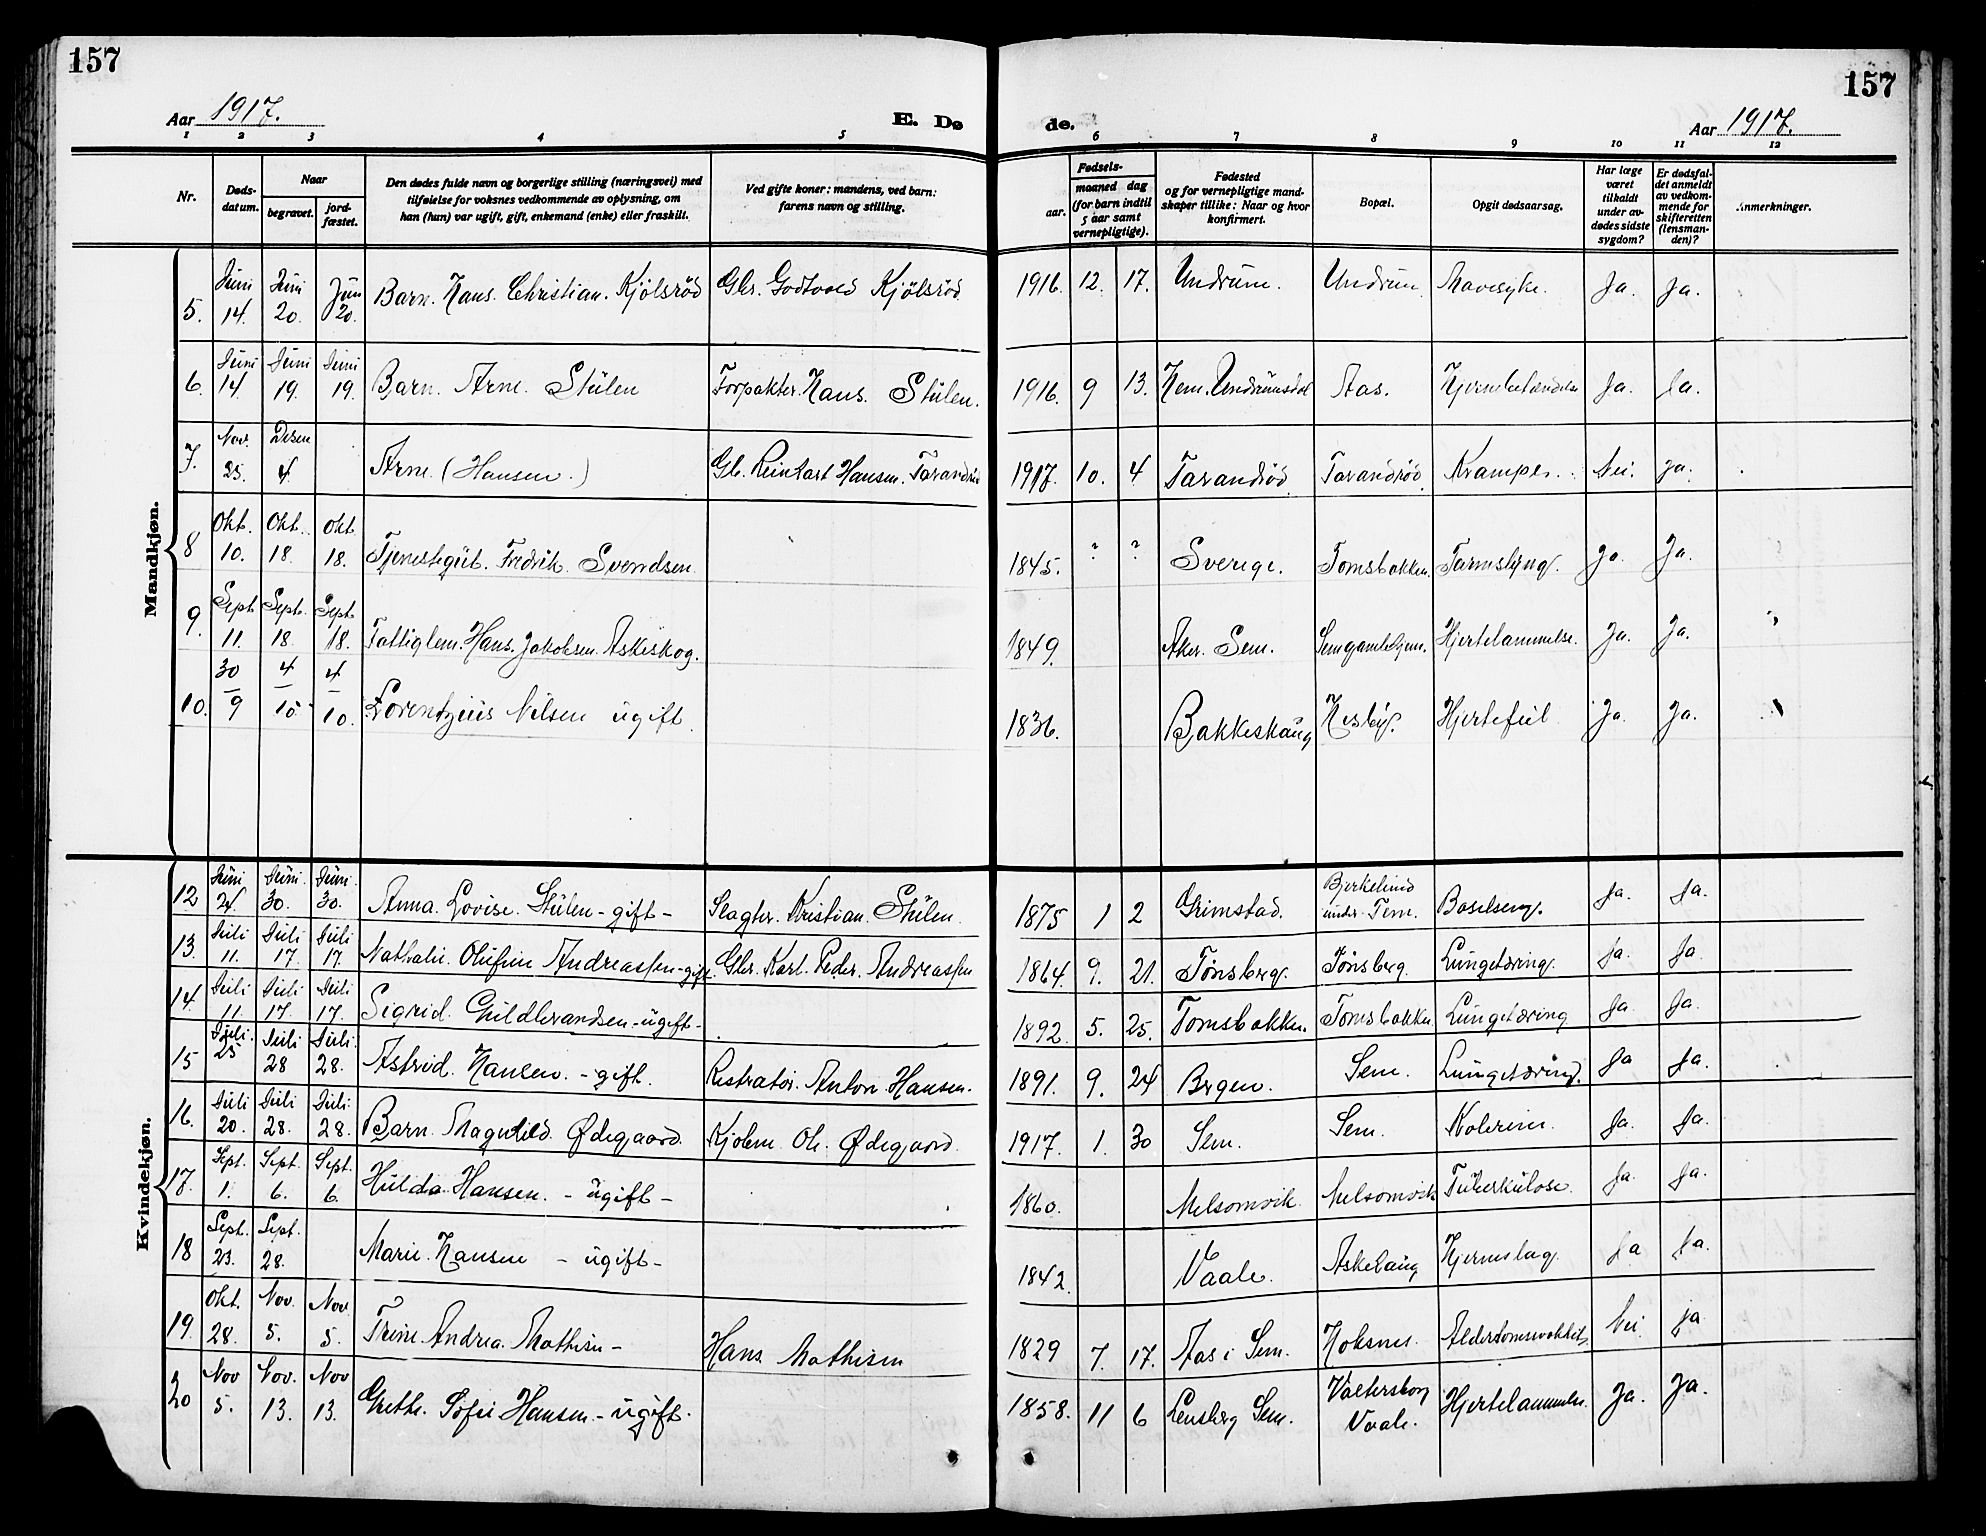 157
157
Aar 1917.
E. Dø
de.
Aar 1917.
1 2 3 4 5 6 7 8 9 10 11 12
Nr.
Døds-
datum.
Naar
begravet.
jord-
fæstet.
Den dødes fulde navn og borgerlige stilling (næringsvei) med
tilføielse for voksnes vedkommende av oplysning, om
han (hun) var ugift, gift, enkemand (enke) eller fraskilt.
Ved gifte koner: mandens, ved barn:
farens navn og stilling.
Fødsels-
aar.
maaned dag
(for barn indtil
5 aar samt
vernepligtige).
Fødested
og for vernepligtige mand-
skaper tillike: Naar og hvor
konfirmert.
Bopæl.
Opgit dødsaarsag.
Har læge
været
tilkaldt
under av-
dødes sidste
sygdom?
Er dødsfal-
det anmeldt
av vedkom-
mende for
skifteretten
(lensman-
den)?
Anmerkninger.
Mandkjøn.
5. Juni 14. Juni 20. Juni 20. Barn. Hans. Christian. Kjölsröd Gbr. Godtvald Kjölsröd. 1916. 12. 17. Undrum. Undrum. Mavesyke. Ja. Ja.
6. Juni 14. Juni 19. Juni 19. Barn. Arne. Stulen Forpakter. Hans. Stulen. 1916. 9 13. Hem. Undrumsdal Aas. Hjernebetændelse Ja. Ja.
7. Nov. 25. Desem 4. Arne. (Hansen.) Gb. Reinhart Hansen. Tarandröd 1917. 10. 4 Tarandröd Tarandröd. Kramper. Nei. Ja.
8 Okt. 10. Okt. 18. Okt. 18. Tjenestegut. Fredrik. Svendsen. 1845. ? ? Sverige. Tomsbakken. Tarmslyng. Ja. Ja.
9. Sept 11. Sept. 18. Sept. 18. Fattiglem. Hans. Jakobsen. Askeskog. 1849. Aker. Sem. Semgamlehjem. Hjertelammelse. Ja. Ja.
10. 30/9 4/10 4/10. Lorentzius Nilsen ugift. 1836. Bakkeskaug Hesby. Hjertefeil. Ja. Ja.
Kvindekjøn.
12 Juni 24 Juni. 30. Juni. 30. Anna. Lovise. Stulen - gift - Slagter. Kristian. Stulen. 1875 1 2 Grimstad. Bjerkelund under Fem. Ja. Ja.
13. Juli 11. Juli 17. Juli 17. Nathalie. Olufine Andreassen - gift. Gbr. Karl. Peder. Andreassen 1864. 9. 21. Tønsberg. Tønsberg. Lungetæring. Ja. Ja.
14. Juli 11. Juli 17. Juli 17. Sigrid. Guldbrandsen - ugift - 1892. 5. 25. Tomsbakken. Tomsbakken Lungetæring Ja Ja.
15 Juli. 25 Juli 28 Juli. 28. Astrid. Hansen. - gift. Restratør. Anton Hansen. 1891. 9. 24 Bergen. Sem. Lungetæring. Ja Ja.
16. Juli 20. Juli 28. Juli 28. Barn. Magnhild. Ødegaard. Kjolem. Ole. Ødegaard. 1917. 1. 30 Sem. Sem. Kolerine. Ja. Ja.
17. Sept. 1. Sept. 6. Sept. 6. Hulda. Hansen. - ugift - 1860. Melsomvik. Melsomvik Tuberkulose. Ja. Ja.
18 Sept. 23. Sept. 28. Marie. Hansen - ugift - 1842. Vaale. Askehaug Hjerneslag. Ja Ja.
19. Okt. 28. Nov. 5. Nov 5. Trine. Andrea. Mathisen - Hans. Mathisen 1829 7. 17. Aas i Sem. Hoksnes. Alderdomssvakhet Nei. Ja
20 Nov 5. Nov. 13. Nov 13. Grethe. Sofie Hansen. - ugift. 1858. 11 6 Lensberg Sem. Valtersborg Vaale. Hjertelammelse. Ja. Ja.